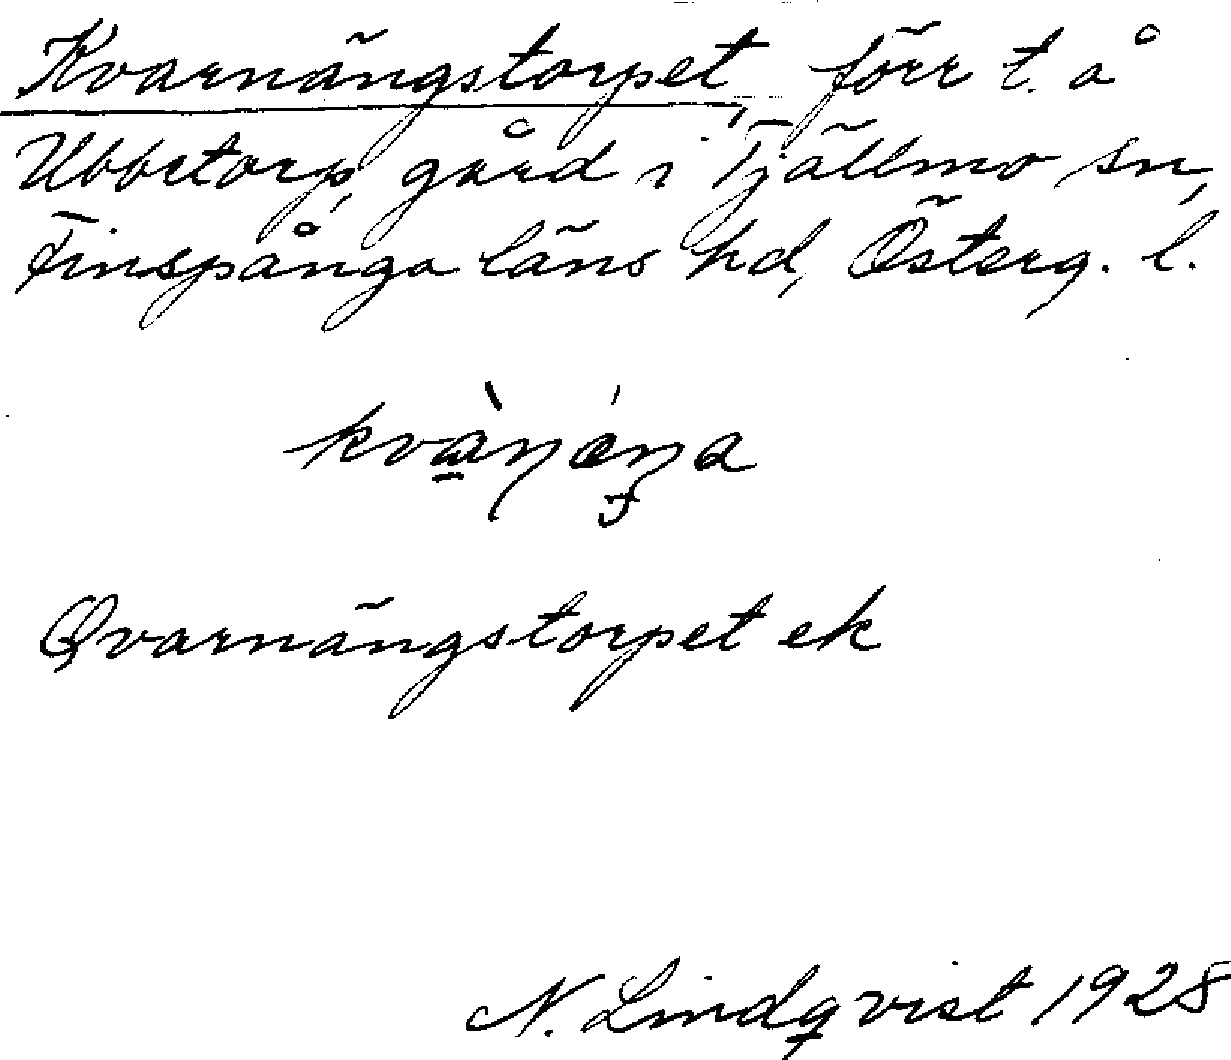 Kvarnängstorpet, förr t. å
Ubbetorp, gård i Tjällmo sn,
Finspånga läns hd, Österg. l.
Qvarnängstorpet ek
N. Lindqvist 1928